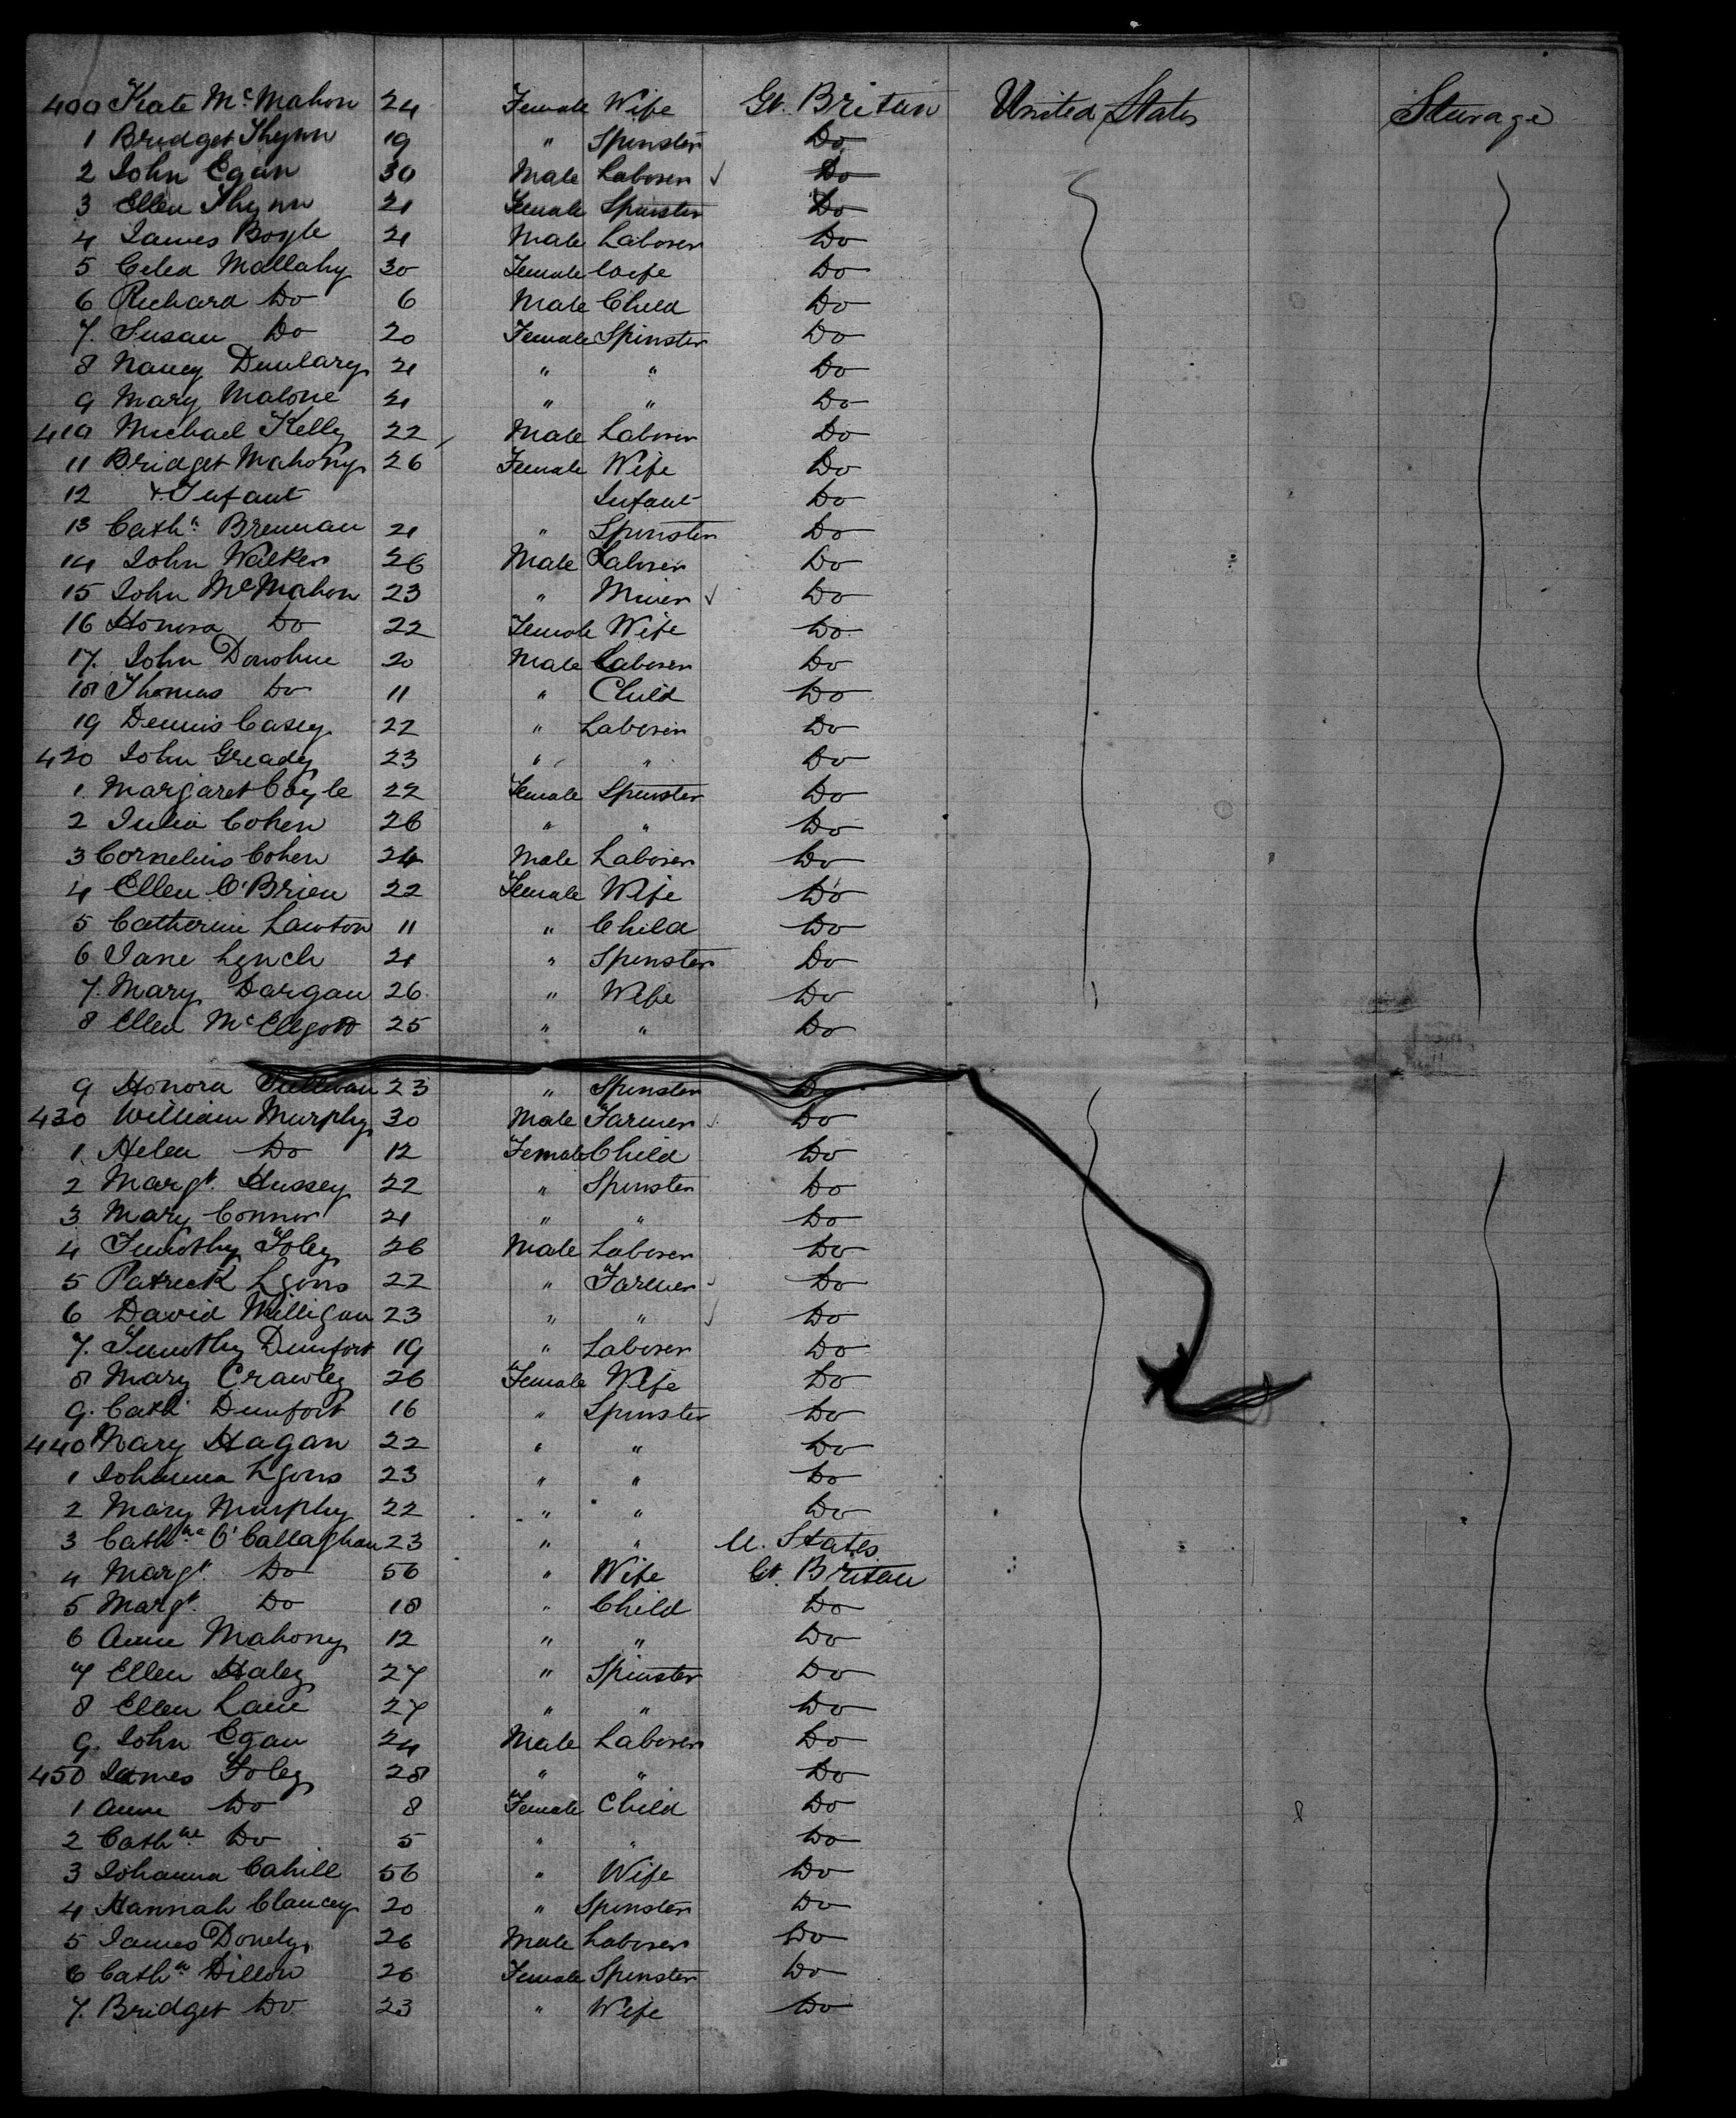 400 Kate McMahon 24 Female Wife Gt. Britan United States Sturage
1 Bridget Thynn 19 " Spinster Do
2 John Egan 30 Male Laborer ✓ Do
3 Ellen Thynn 21 Female Spinster Do
4 James Boyle 21 Male Laborer Do
5 Celia Mallahy 30 Female Wife Do
6 Richard Do 6 Male Child Do
7. Susan Do 20 Female Spinster Do
8 Nancy 21 " " Do
9 Mary Malone 21 " " Do
410 Michael Kelly 22 Male Laborer Do
11 Bridget Mahony 26 Female Wife Do
12 + Infant Infant Do
13 Cathn Brennan 21 " Spinster Do
14 John Walker 26 Male Laborer Do
15 John McMahon 23 " Miner ✓ Do
16 Honora Do 22 Female Wife Do
17. John Donohue 20 Male Laborer Do
18 Thomas Do 11 " Child Do
19 Dennis Casey 22 " Laborer Do
420 John Gready 23 " " Do
1. Margaret Coyle 22 Female Spinster Do
2 Julia Cohen 26 " " Do
3 Cornelius Cohen 24 Male Laborer Do
4 Ellen O'Brien 22 Female Wife Do
5 Catherine Lawton 11 " Child Do
6 Jane Lynch 21 " Spinster Do
7. Mary Dargan 26 " Wife Do
8 Ellen McElgott 25 " " Do
9 Honora Sullivan 23 " Spinster Do
430 William Murphy 30 Male Farmer Do
1. Helen Do 12 Female Child Do
2 Margt. Hussey 22 " Spinster Do
3 Mary Connor 21 " " Do
4 Timothy Foley 26 Male Laborer Do
5 Patrick Lyons 22 " Farmer ✓ Do
6 David Milligan 23 " " ✓ Do
7. Timothy Dunfort 19 " Laborer Do
8 Mary Crawley 26 Female Wife Do
9. Cath Dunfort 16 " Spinster Do
440 Mary Hagan 22 " " Do
1 Johanna Lyons 23 " " Do
2 Mary Murphy 22 " " Do
3 Cathne O'Callaghan 23 " " U. States
4 Margt. Do 56 " Wife Gt. Britan
5 Margt. Do 18 " Child Do
6 Anne Mahony 12 " " Do
7 Ellen Haley 27 " Spinster Do
8 Ellen Lane 27 " " Do
9. John Egan 24 Male Laborer Do
450 James Foley 28 " " Do
1 Anne Do 8 Female Child Do
2 Cathne Do 5 " " Do
3 Johanna Cahill 56 " Wife Do
4 Hannah Clancey 20 " Spinster Do
5 James Donely 26 Male Laborer Do
6 Cathn Dillon 26 Female Spinster Do
7. Bridget Do 23 " Wife Do